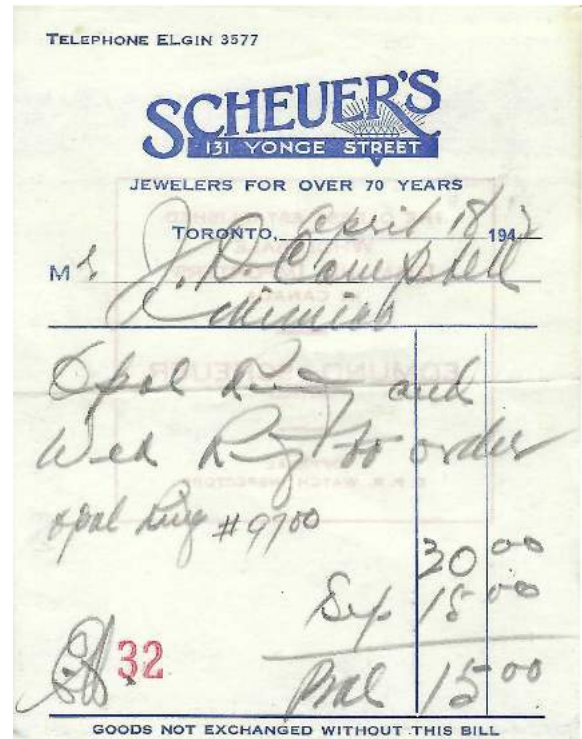 TELEPHONE ELGIN 3577
SCHEUER'S
131 YONGE STREET
JEWELERS FOR OVER 70 YEARS
TORONTO, April 18 194
M J. D. Campbell
Opal Ring and
Wed Ring to order
opal Ring #9700
30 00
Dep. 15 00
32
Bal 15 00
GOODS NOT EXCHANGED WITHOUT THIS BILL